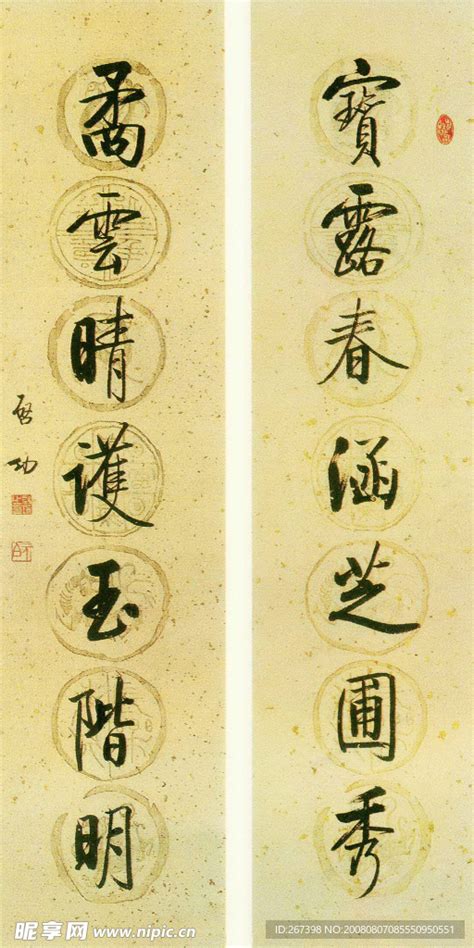 寶露春涵芝圃秀
矞雲晴護玉階明
啓功
昵享网 www.nipic.cn
ID:267398 NO:20080807085550950551